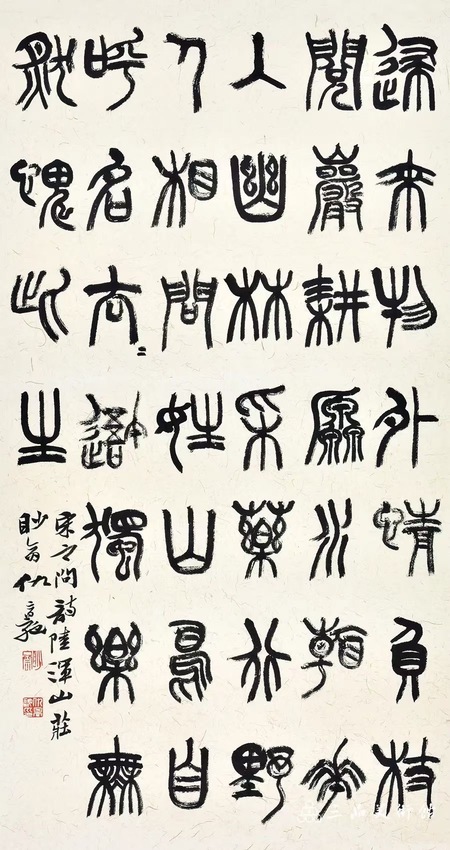 歸来物外情負杖
閱巖耕原水看華
入幽林采藥行野
人相問姓山鳥自
呼名去〻吾獨樂無
然愧此生
宋之問詩陸渾山莊
眇翁仇